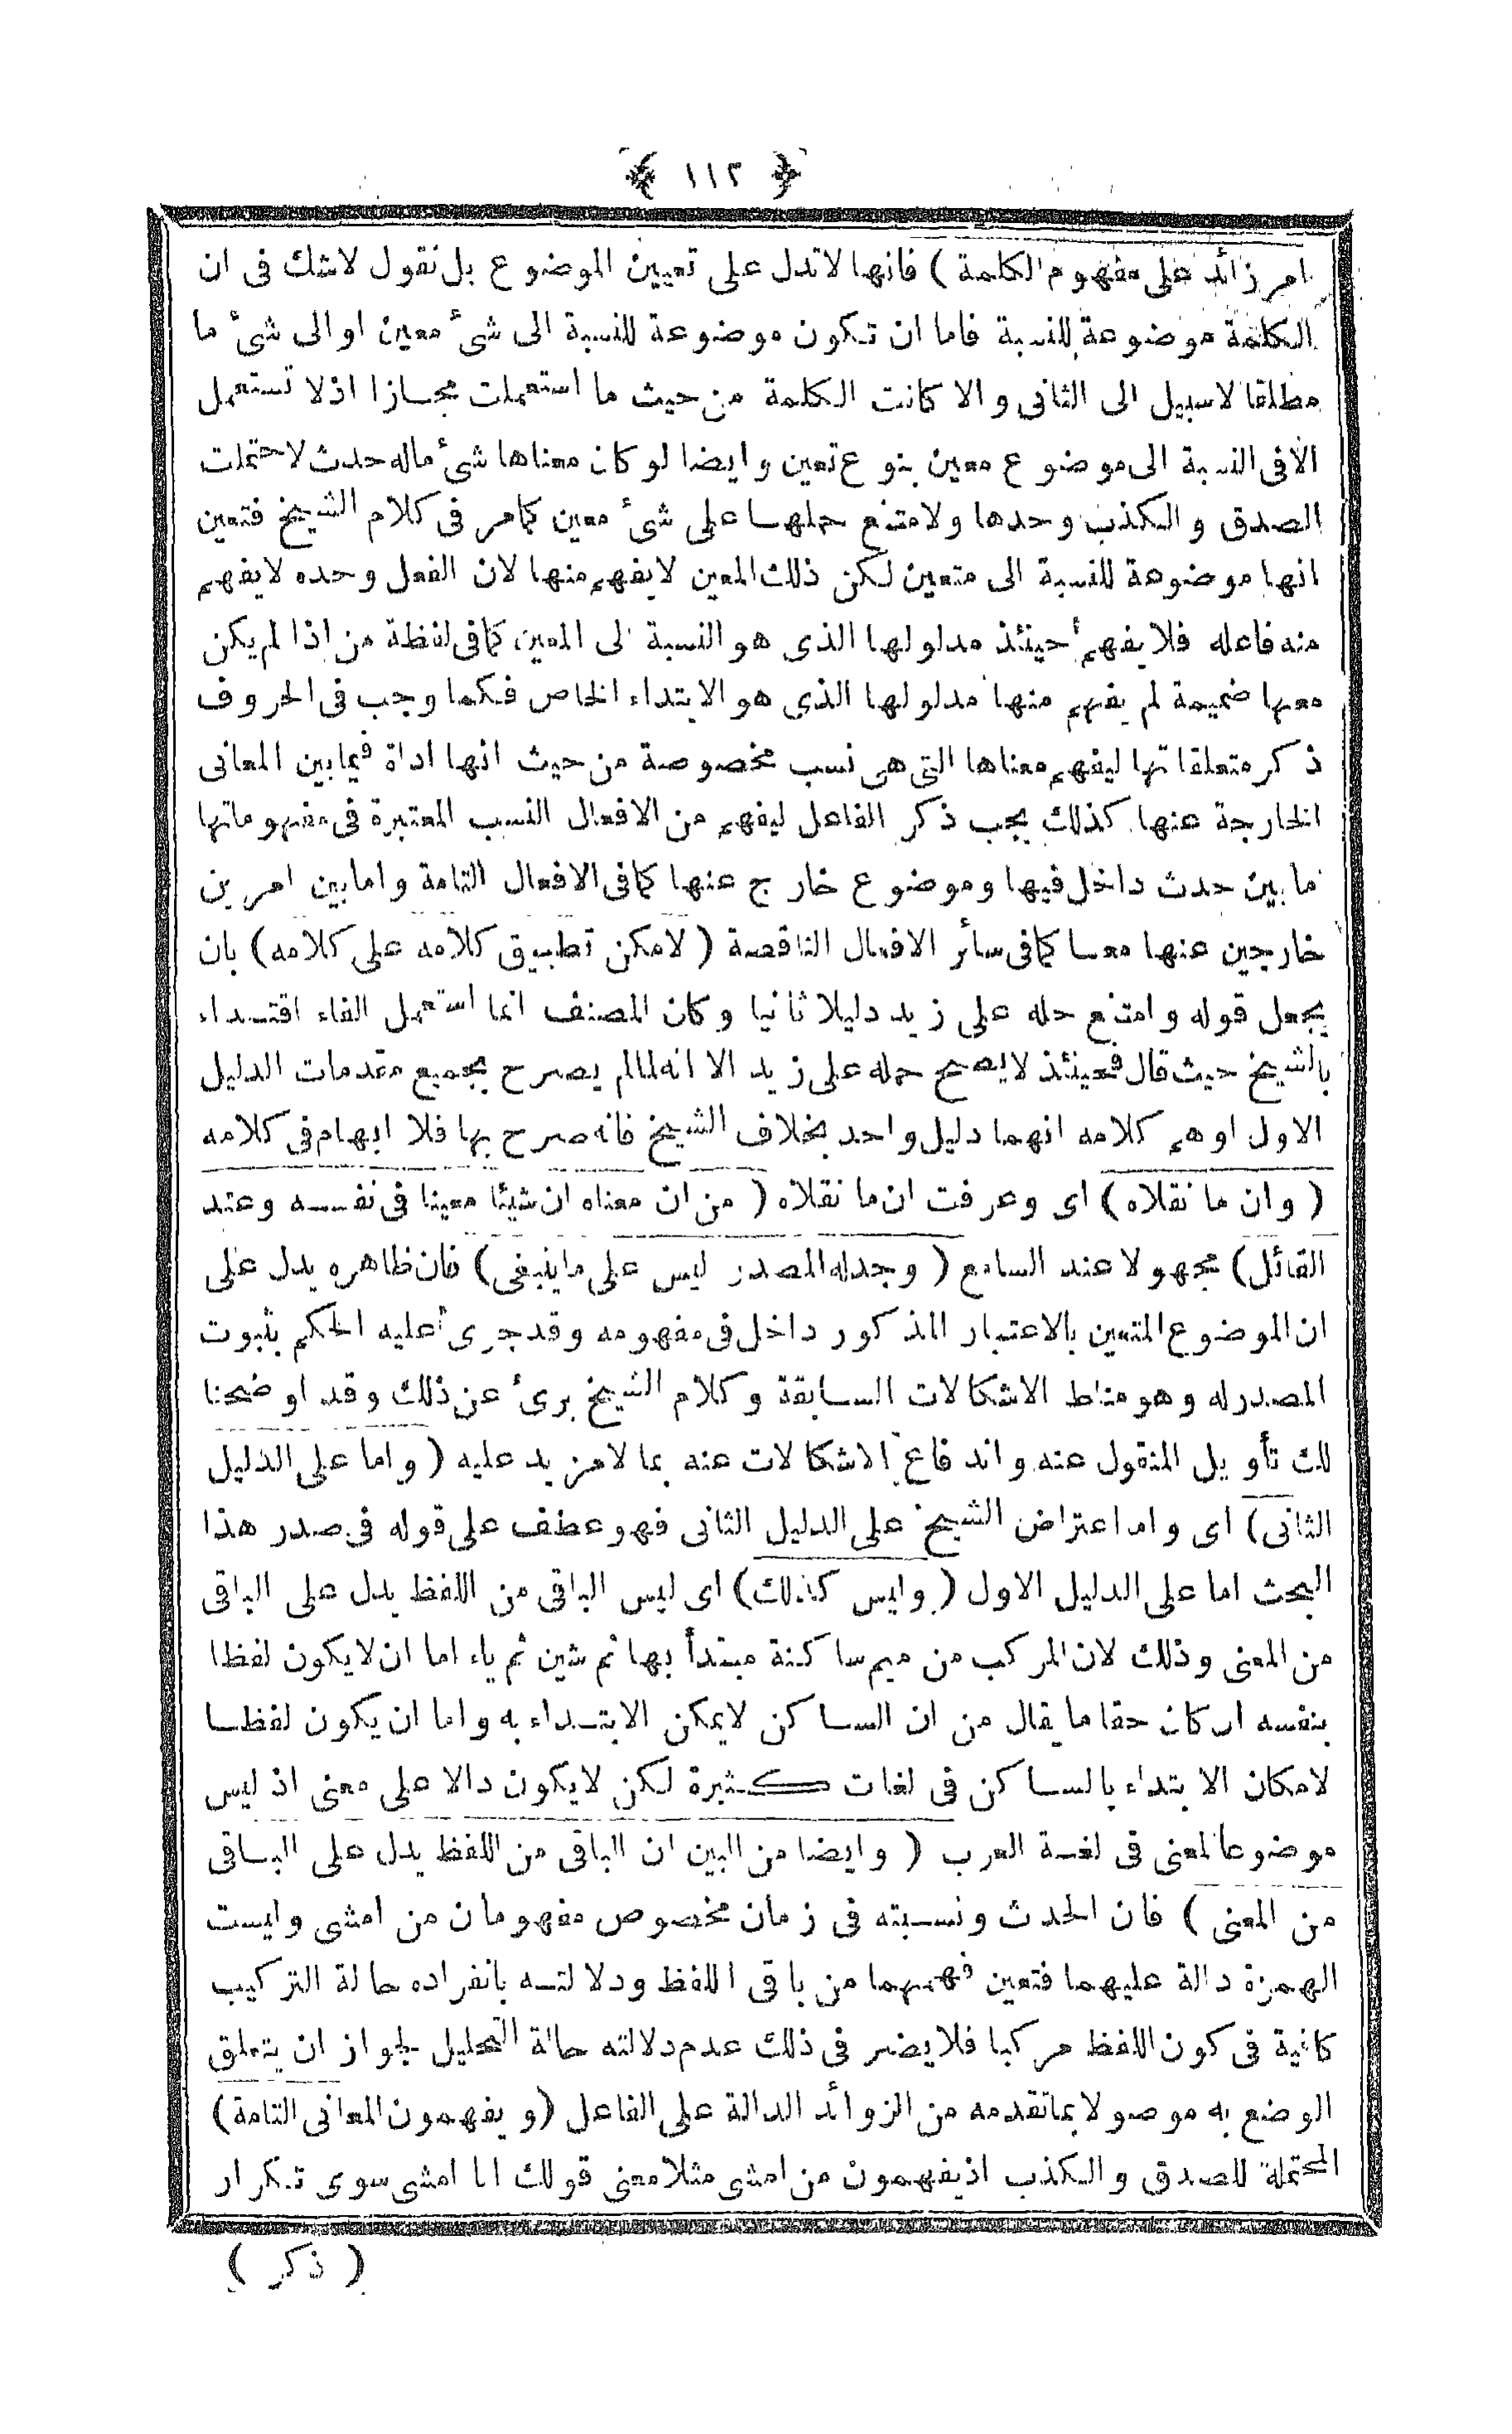 ﴿ ١١٢ ﴾
امر زائد على مفهوم الكلمة ) فانها لا تدل على تعيين الموضوع بل نقول لاشك فى ان
الكلمة موضوعة للنسبة فاما ان تكون موضوعة للنسبة الى شئ معين او الى شئ ما
مطلقا لاسبيل الى الثانى والا كانت الكلمة من حيث ما استعملت مجازا اذلا تستعمل
الافى النسبة الى موضوع معين بنوع تعين وايضا لو كان معناها شئ ماله حدث لاحتملت
الصدق والكذب وحدها ولامتنع حملها على شئ معين كمامر فى كلام الشيخ فتعين
انها موضوعة للنسبة الى متعين لكن ذلك المعين لايفهم منها لان الفعل وحده لايفهم
منه فاعله فلا يفهم حينئذ مدلولها الذى هو النسبة الى المعين كمافى لفظة من اذا لم يكن
معها ضميمة لم يفهم منها مدلولها الذى هو الابتداء الخاص فكما وجب فى الحروف
ذكر متعلقاتها ليفهم معناها التى هى نسب مخصوصة من حيث انها اداة فيمابين المعانى
الخارجة عنها كذلك يجب ذكر الفاعل ليفهم من الافعال النسب المعتبرة فى مفهوماتها
ما بين حدث داخل فيها وموضوع خارج عنها كمافى الافعال التامة وامابين امرين
خارجين عنها معا كمافى سائر الافعال الناقصة ( لامكن تطبيق كلامه على كلامه ) بان
يجعل قوله وامتنع حله على زيد دليلا ثانيا وكان المصنف انما استعمل الفاء اقتداء
بالشيخ حيث قال فحينئذ لايصح حمله على زيد الا انه لمالم يصرح بجميع مقدمات الدليل
الاول اوهم كلامه انهما دليل واحد بخلاف الشيخ فانه صرح بها فلا ابهام فى كلامه
( وان ما نقلاه ) اى وعرفت ان ما نقلاه ( من ان معناه ان شيئا معينا فى نفسه وعند
القائل ) مجهولا عند السامع ( وجدله المصدر ليس على ماينبغى ) فان ظاهره يدل على
ان الموضوع المتعين بالاعتبار المذكور داخل فى مفهومه وقد جرى عليه الحكم بثبوت
المصدر له وهو مناط الاشكالات السابقة وكلام الشيخ برئ عن ذلك وقد اوضحنا
لك تأويل المنقول عنه واندفاع الاشكالات عنه بما لامزيد عليه ( واما على الدليل
الثانى ) اى واما اعتراض الشيخ على الدليل الثانى فهو عطف على قوله فى صدر هذا
البحث اما على الدليل الاول ( وليس كذلك ) اى ليس الباقى من اللفظ يدل على الباقى
من المعنى وذلك لان المركب من ميم ساكنة مبتدأ بها ثم شين ثم ياء اما ان لا يكون لفظا
بنفسه ان كان حقا ما يقال من ان الساكن لايمكن الابتداء به واما ان يكون لفظا
لامكان الابتداء بالساكن فى لغات كثيرة لكن لايكون دالا على معنى اذ ليس
موضوعا لمعنى فى لغة العرب ( وايضا من البين ان الباقى من اللفظ يدل على الباقى
من المعنى ) فان الحدث ونسبته فى زمان مخصوص مفهومان من امشى وليست
الهمزة دالة عليهما فتعين فهمهما من باقى اللفظ ودلالته بانفراده حالة التركيب
كافية فى كون اللفظ مركبا فلا يضر فى ذلك عدم دلالته حالة التحليل لجواز ان يتعلق
الوضع به موصولا بماتقدمه من الزوائد الدالة على الفاعل ( ويفهمون المعانى التامة )
المحتملة للصدق والكذب اذ يفهمون من امشى مثلا معنى قولك انا امشى سوى تكرار
( ذكر )